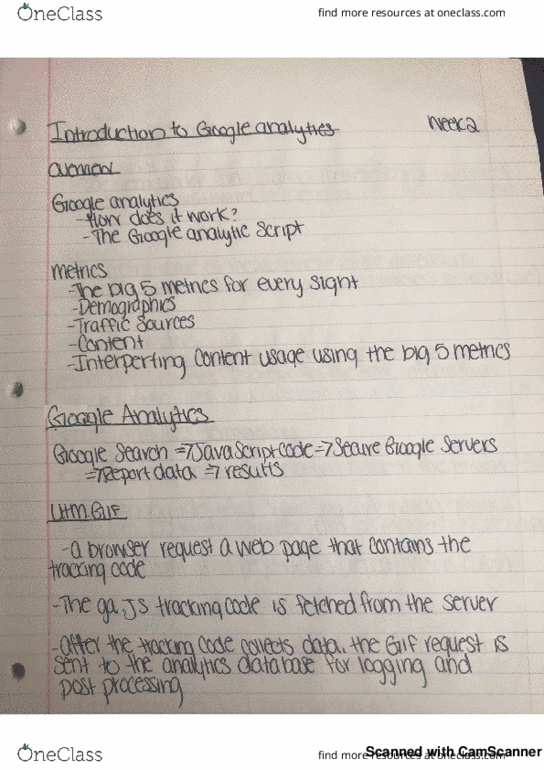 OneClass
find more resources at oneclass.com
Introduction to Google analytics
Week 2
overview
Google analytics
-How does it work?
-The Google analytic Script
metrics
-The big 5 metrics for every sight
-Demographics
-Traffic Sources
-Content
-Interperting content usage using the big 5 metrics
Google Analytics
Google Search => JavaScript code => Secure Google Servers
=> Report data => results
UTM.GIF
-a browser request a web page that contains the
tracking code
-The ga.js tracking code is fetched from the server
-after the tracking code collects data, the Gif request is
sent to the analytics database for logging and
post processing
OneClass
find more resources at oneclass.com
Scanned with CamScanner